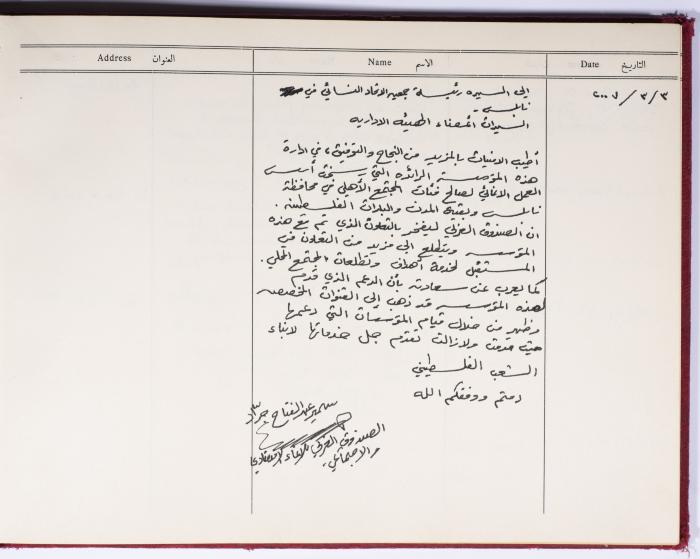 التاريخ Date
الاسم Name
العنوان Address
٢٠٠٧/٣/٣
إلى السيدة رئيسة جمعية الاتحاد النسائي في
نابلس.
السيدات أعضاء الهيئة الادارية
أطيب الامنيات بالمزيد من النجاح والتوفيق، في ادارة
هذه المؤسسة الرائدة التي رسخت أسس
العمل الانمائي لصالح فئات المجتمع الأهلي في محافظة
نابلس وبقية المدن والبلدات الفلسطينية.
ان الصندوق العربي ليفخر بالتعاون الذي تم مع هذه
المؤسسة ويتطلع الى مزيد من التعاون في
المستقبل لخدمة أهداف وتطلعات المجتمع المحلي.
كما يعرب عن سعادته بأن الدعم الذي قدم
لهذه المؤسسة قد ذهب إلى القنوات المخصصة
وظهر من خلال قيام المؤسسات التي دعمها
حيث قدمت ولازالت تقدم جل خدماتها لابناء
الشعب الفلسطيني
دمتم ووفقكم الله
سمير عبد الفتاح جراد
الصندوق العربي للإنماء الاقتصادي
والاجتماعي